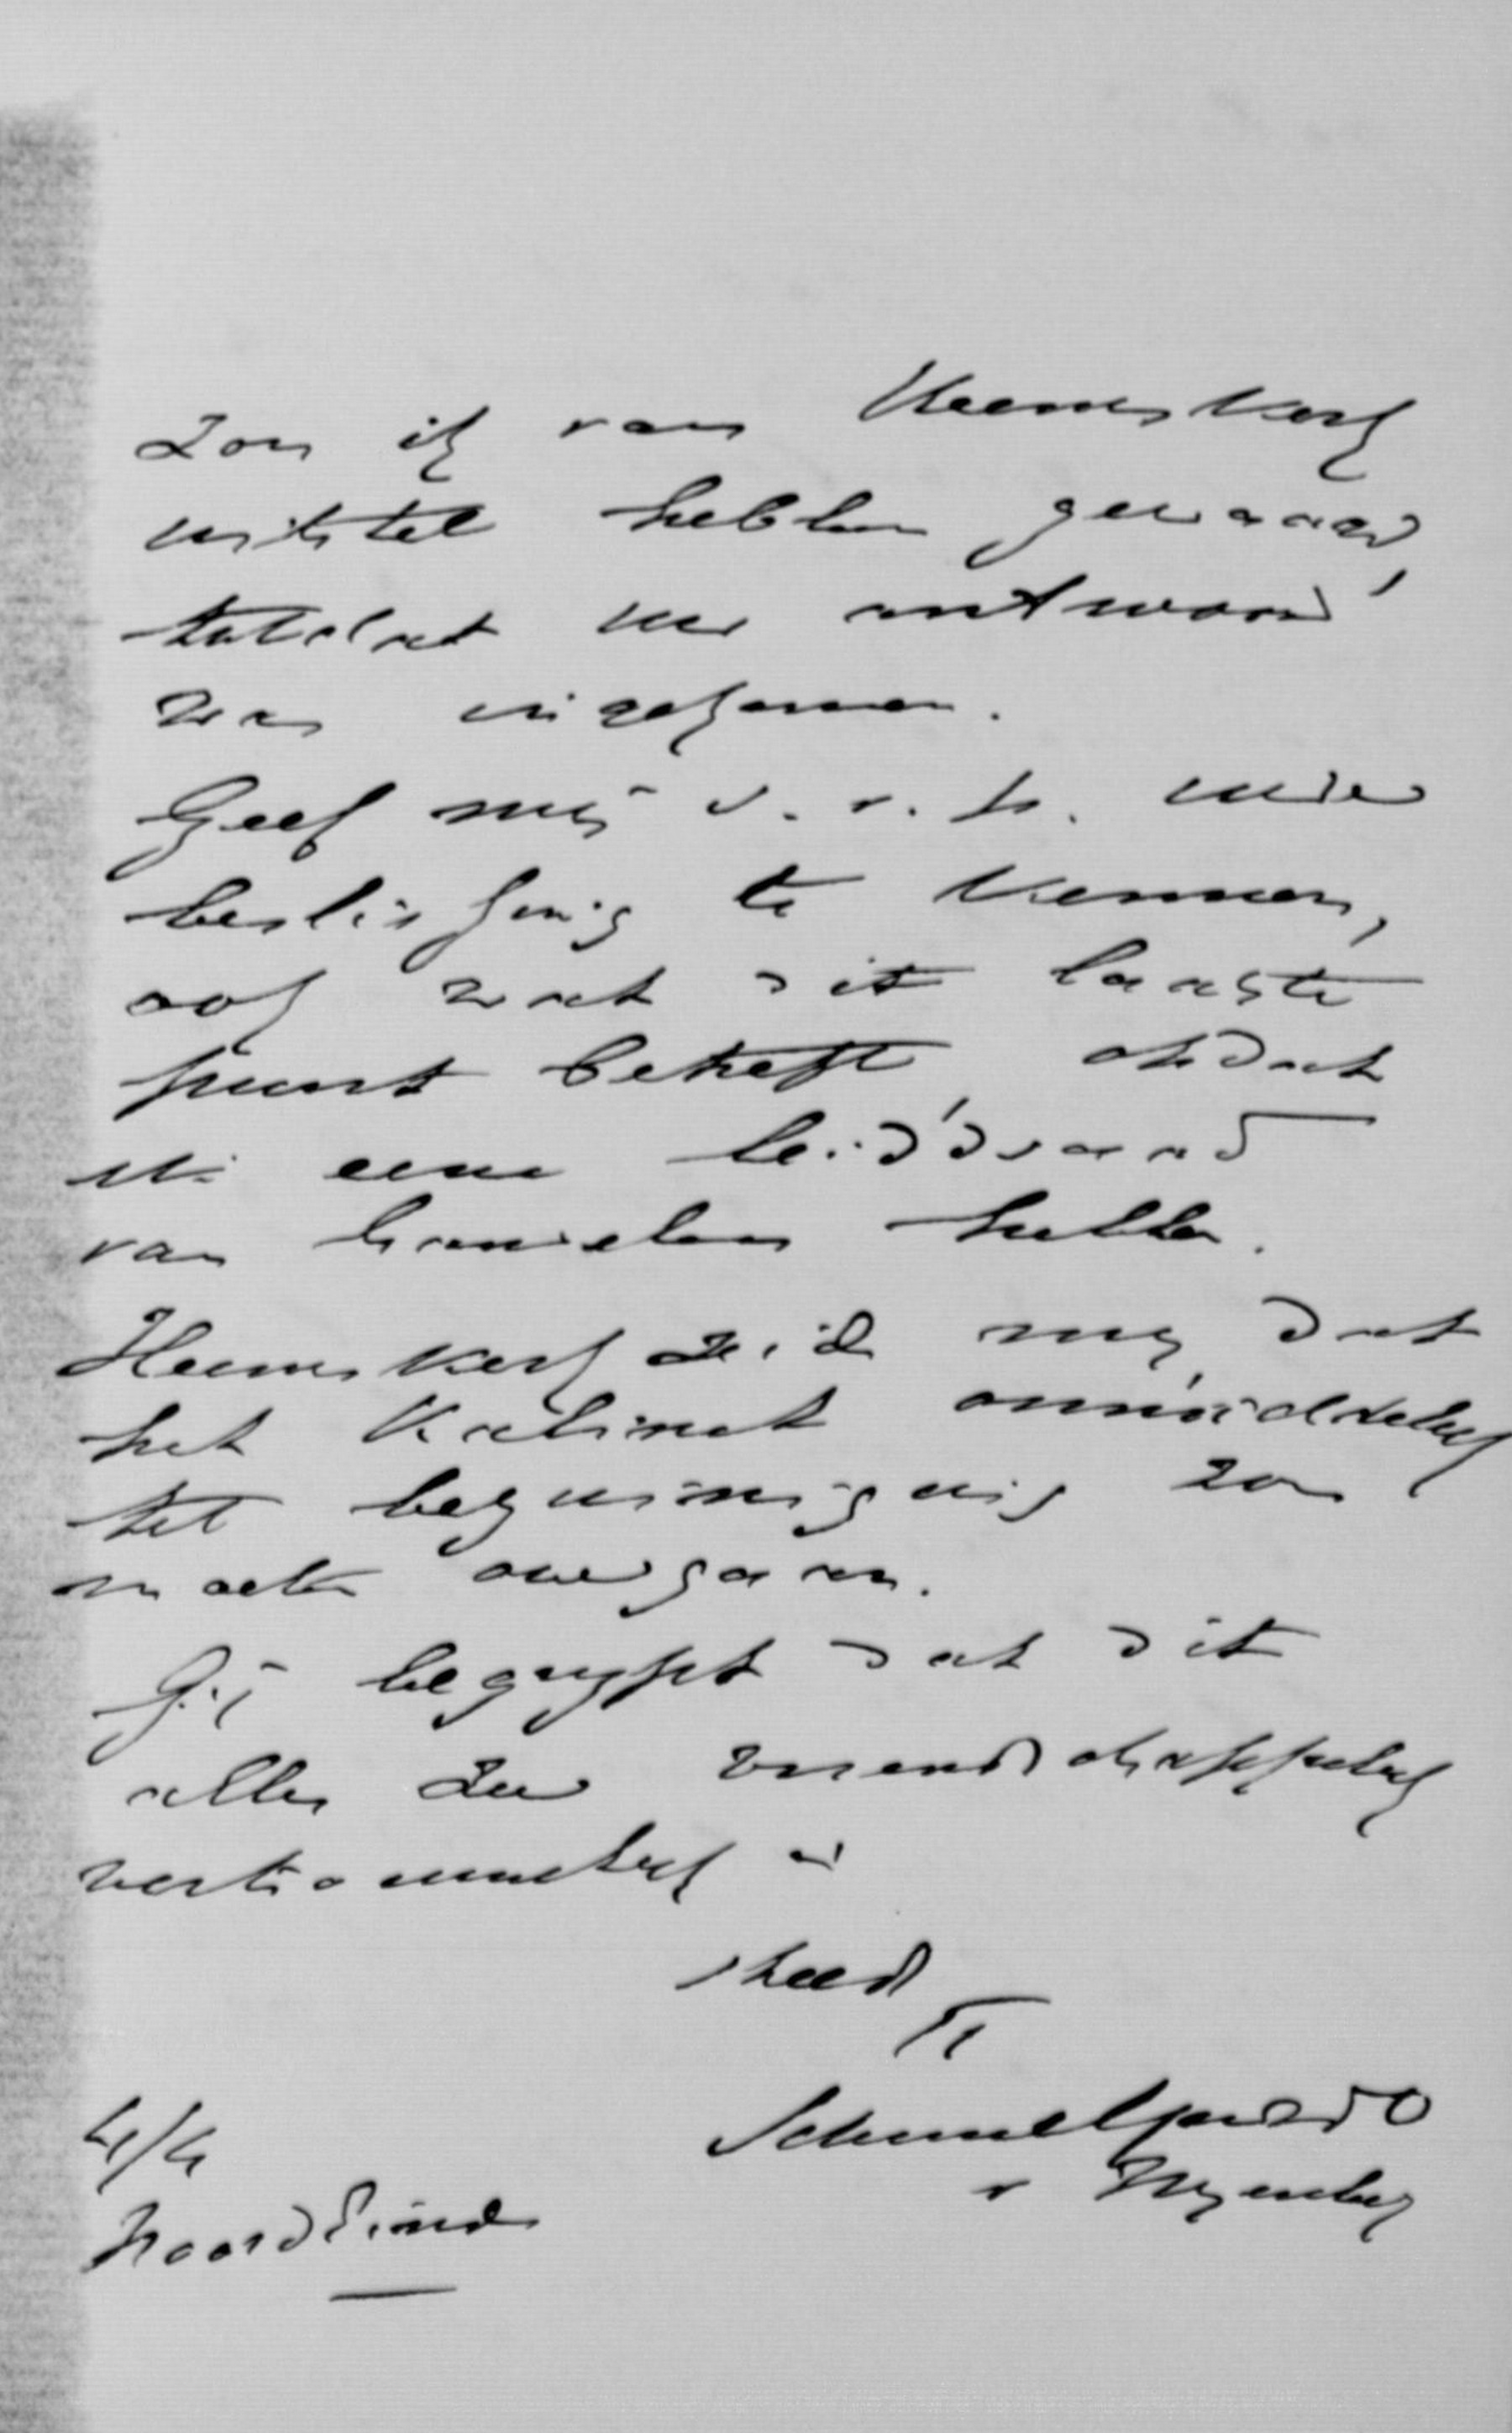 zou ik van Heemskerk
uitstel hebben gevraagd,
totdat uw antwoord
was ingekomen.
Geef mij s.v.p. uwe
beslissing te kennen,
ook wat dit laatste
punt betreft opdat
ik eene leiddraad
van handelen hebbe.
Heemskerk zeide mij, dat
het Kabinet onmiddelijk
tot bezuiniging zou
moeten overgaan.
Gij begrijpt dat dit
alles zeer vriendschappelijk
vertrouwelijk is
steeds
Tt
Schimmelpenninck
v Nyenbeg
4/4
Noordeinde